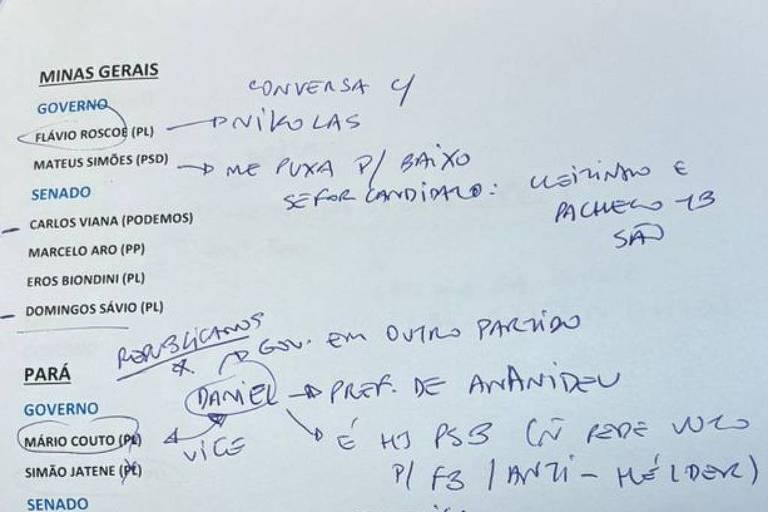 MINAS GERAIS
CONVERSA C/
GOVERNO
FLÁVIO ROSCOE (PL) → NIKOLAS
MATEUS SIMÕES (PSD) → ME PUXA P/ BAIXO
SENADO
SE FOR CANDIDATO: CLEITINHO E
CARLOS VIANA (PODEMOS)
PACHECO TB
SÃO
MARCELO ARO (PP)
EROS BIONDINI (PL)
DOMINGOS SÁVIO (PL)
REPUBLICANOS
* → GOV. EM OUTRO PARTIDO
PARÁ
DANIEL → PREF. DE ANANIDEU
GOVERNO
MÁRIO COUTO (PL) VICE → É HJ PSB (Ñ PEDE VOTO
SIMÃO JATENE (PL) P/ FB / ANTI-HÉLDER)
SENADO